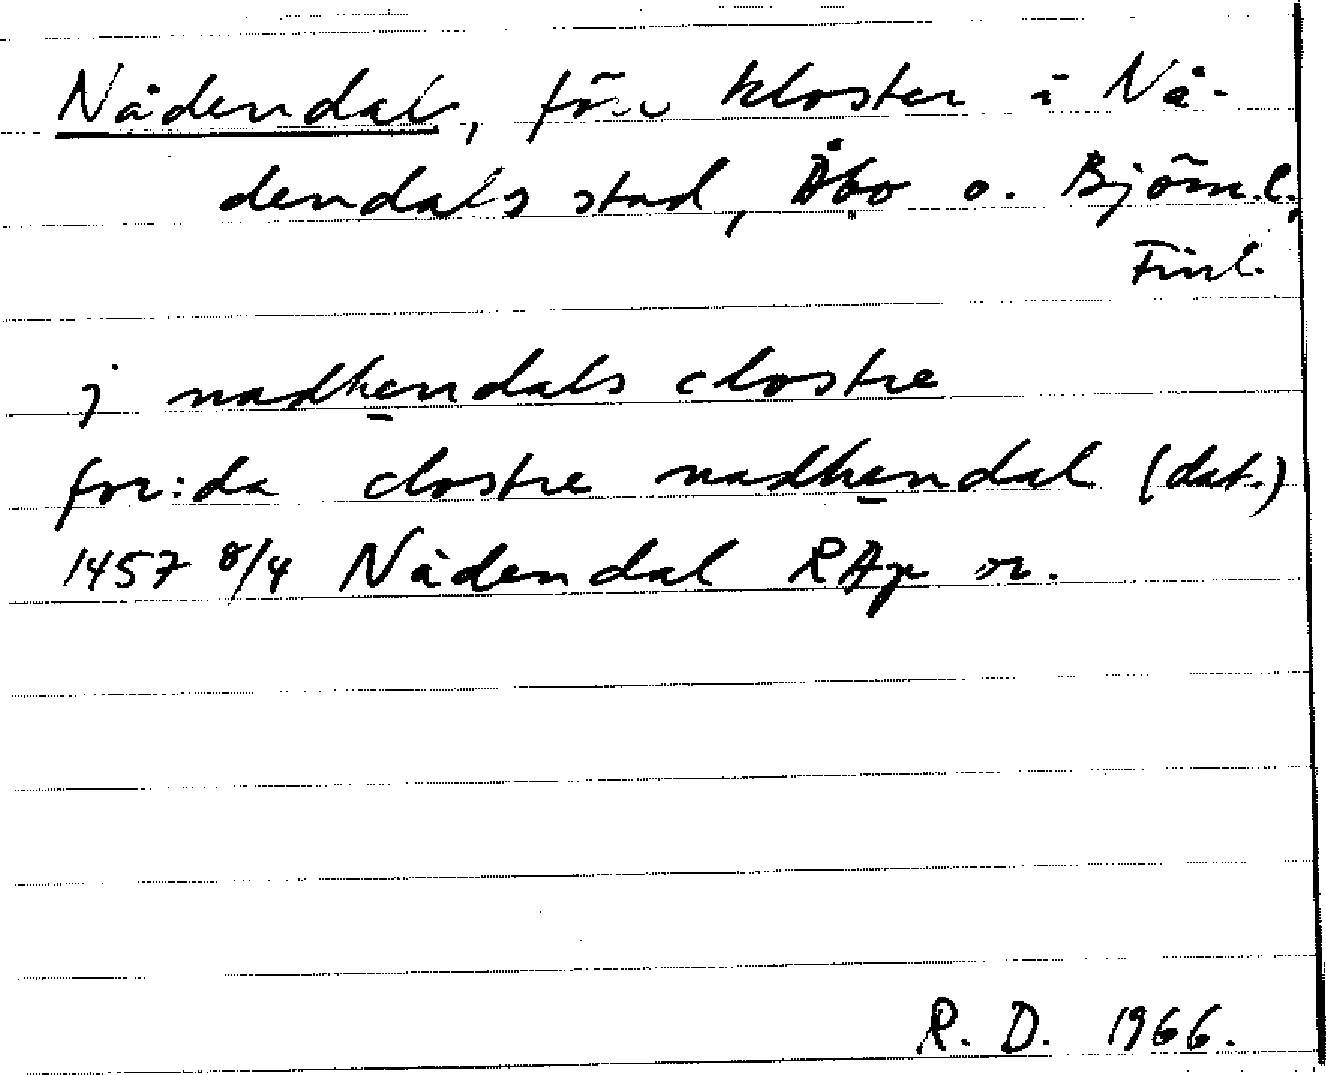 Nådendal, förr kloster i Nå-
dendals stad, Åbo o. Björn.l.,
Finl.
j nadhendals clostre
for:da clostre nadhendal (dat.)
1457 8/4 Nådendal RAp or.
R. D. 1966.